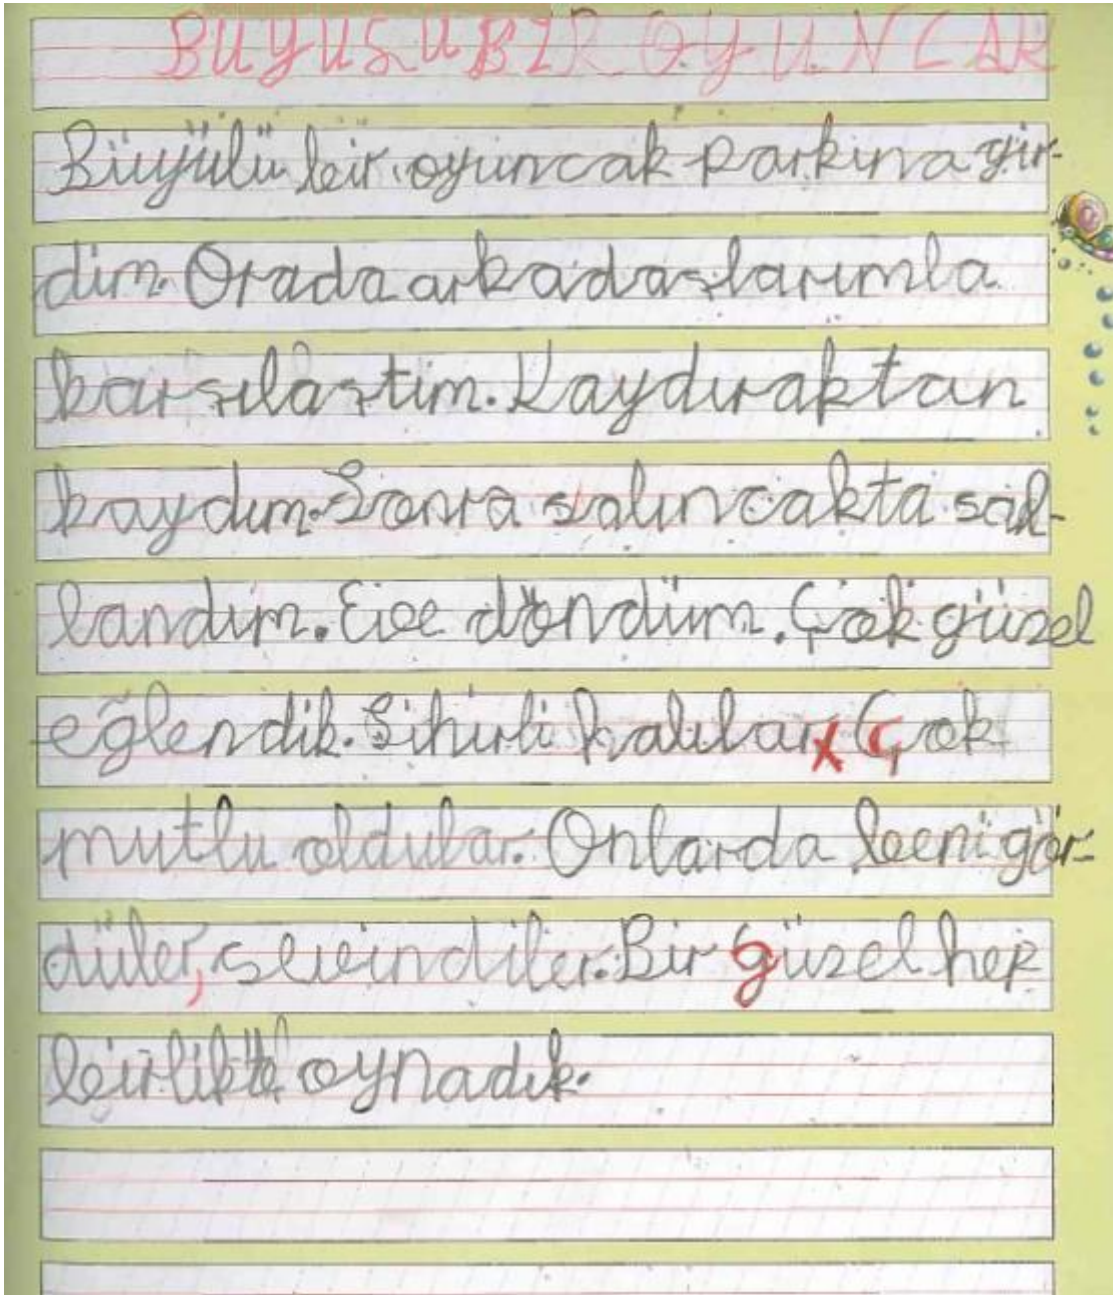 BUYUSU BİR OYUNCAK
Büyülü bir oyuncak parkına gir-
dim. Orada arkadaşlarımla
karşılaştım. Kaydıraktan
kaydım. Sonra salıncakta sal-
landım. Eve döndüm. Çok güzel
eğlendik. Sihirli halılar Çok
mutlu oldular. Onlarda beni gör-
düler, sevindiler. Bir güzel hep
birlikte oynadık.